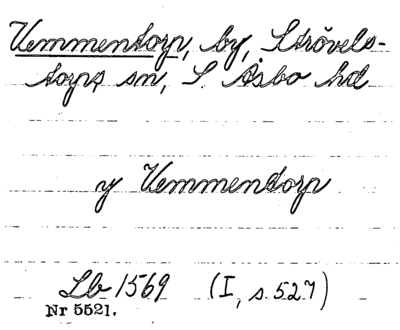 Vemmentorp, by, Strövels-
torps sn, S. Åsbo hd
y Vemmendorp
Lb 1569 (I, s. 527)
Nr 5521.